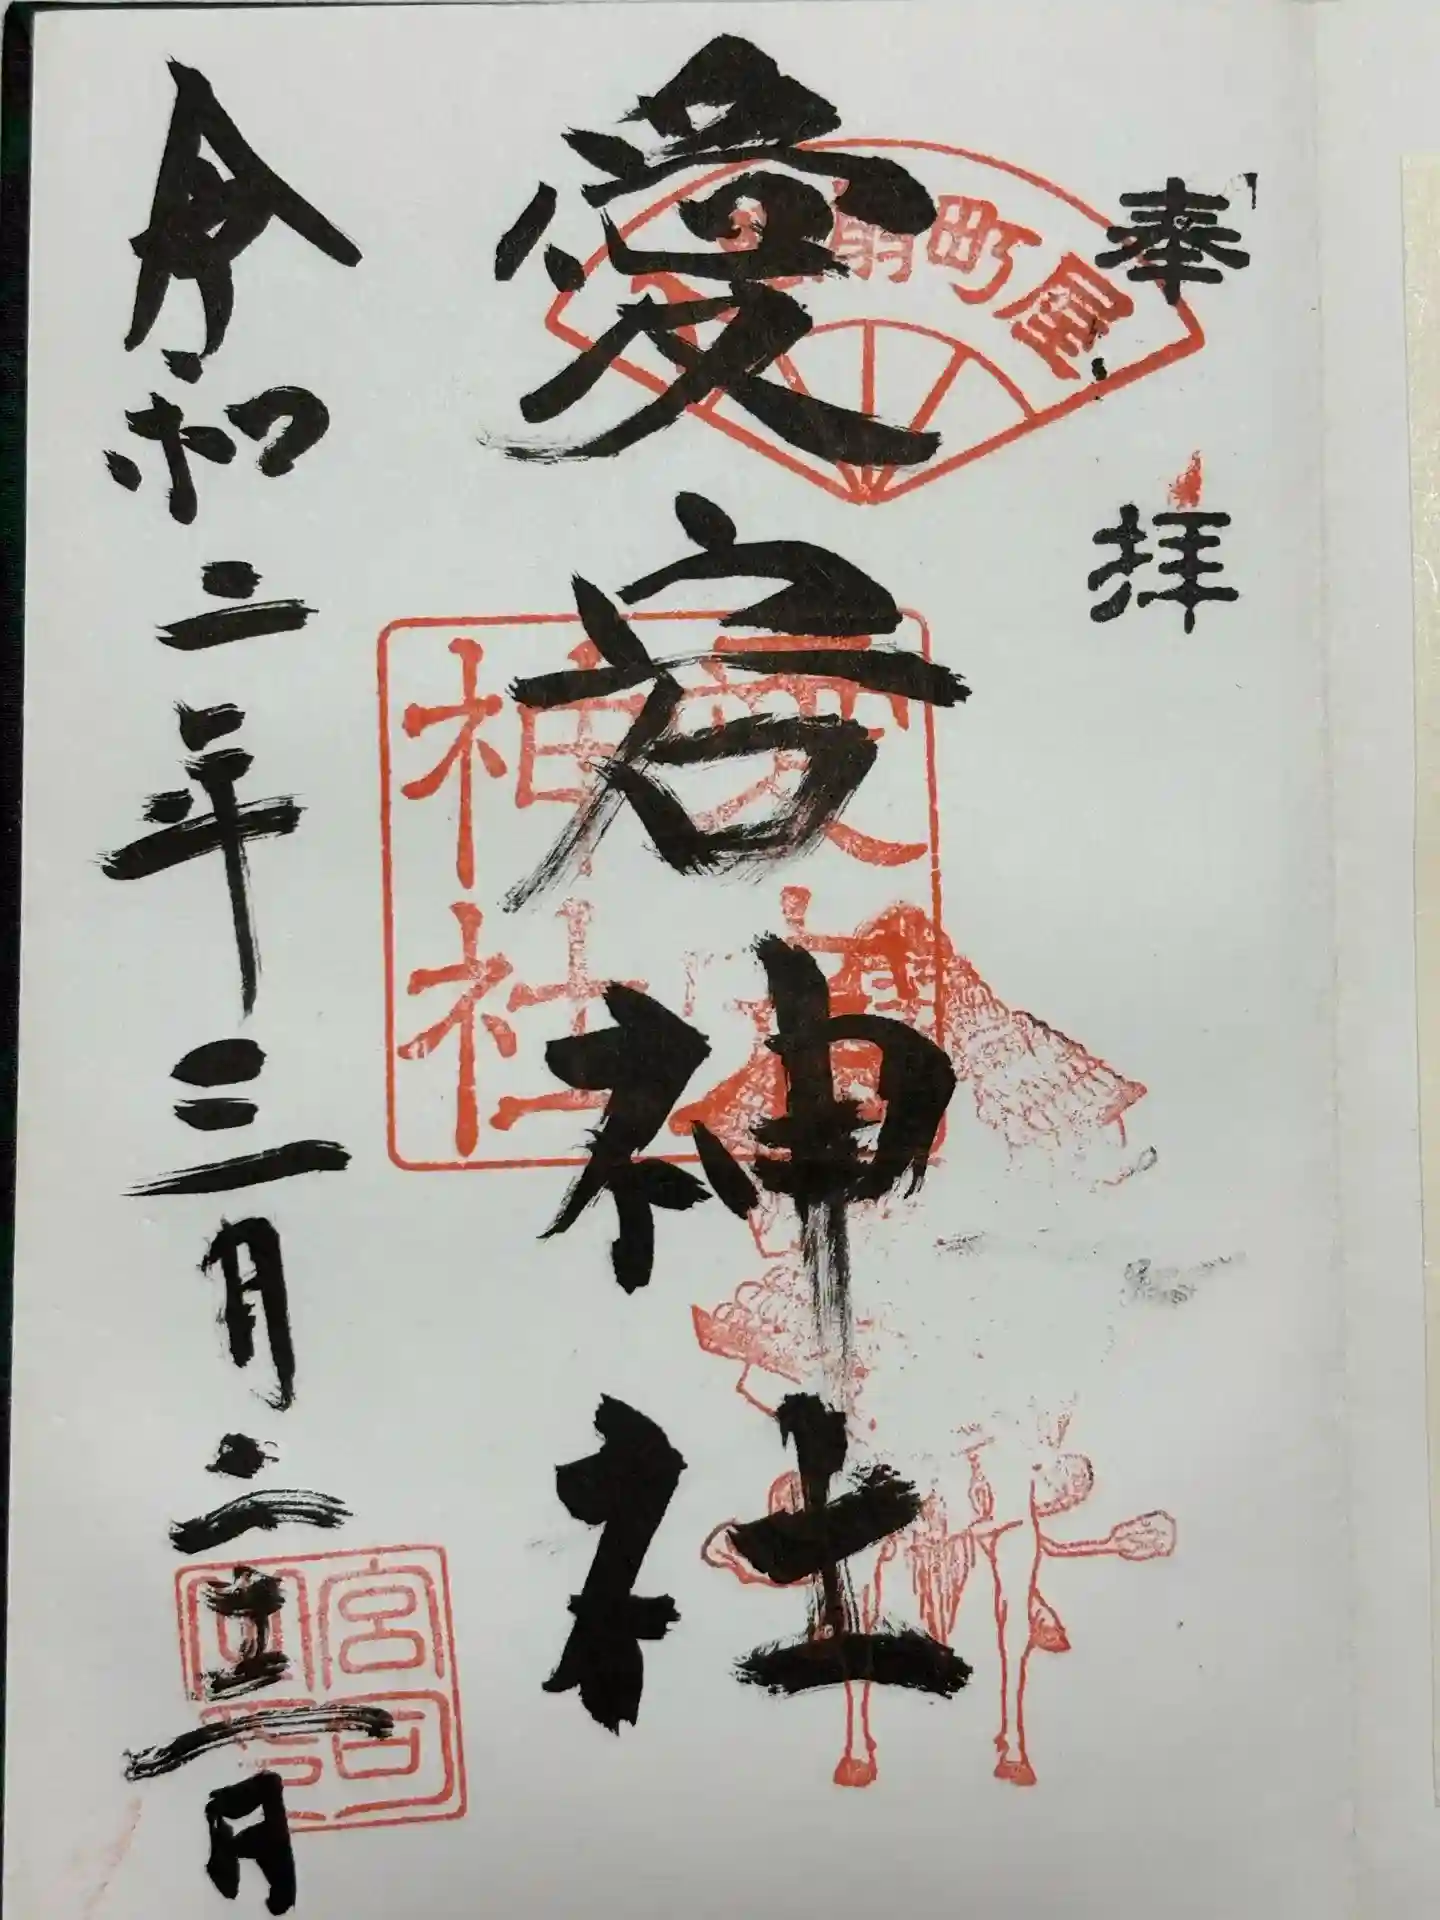 奉拝
扇町屋
愛宕神社
愛宕
神社
令和二年三月二十二日
宮司
之印